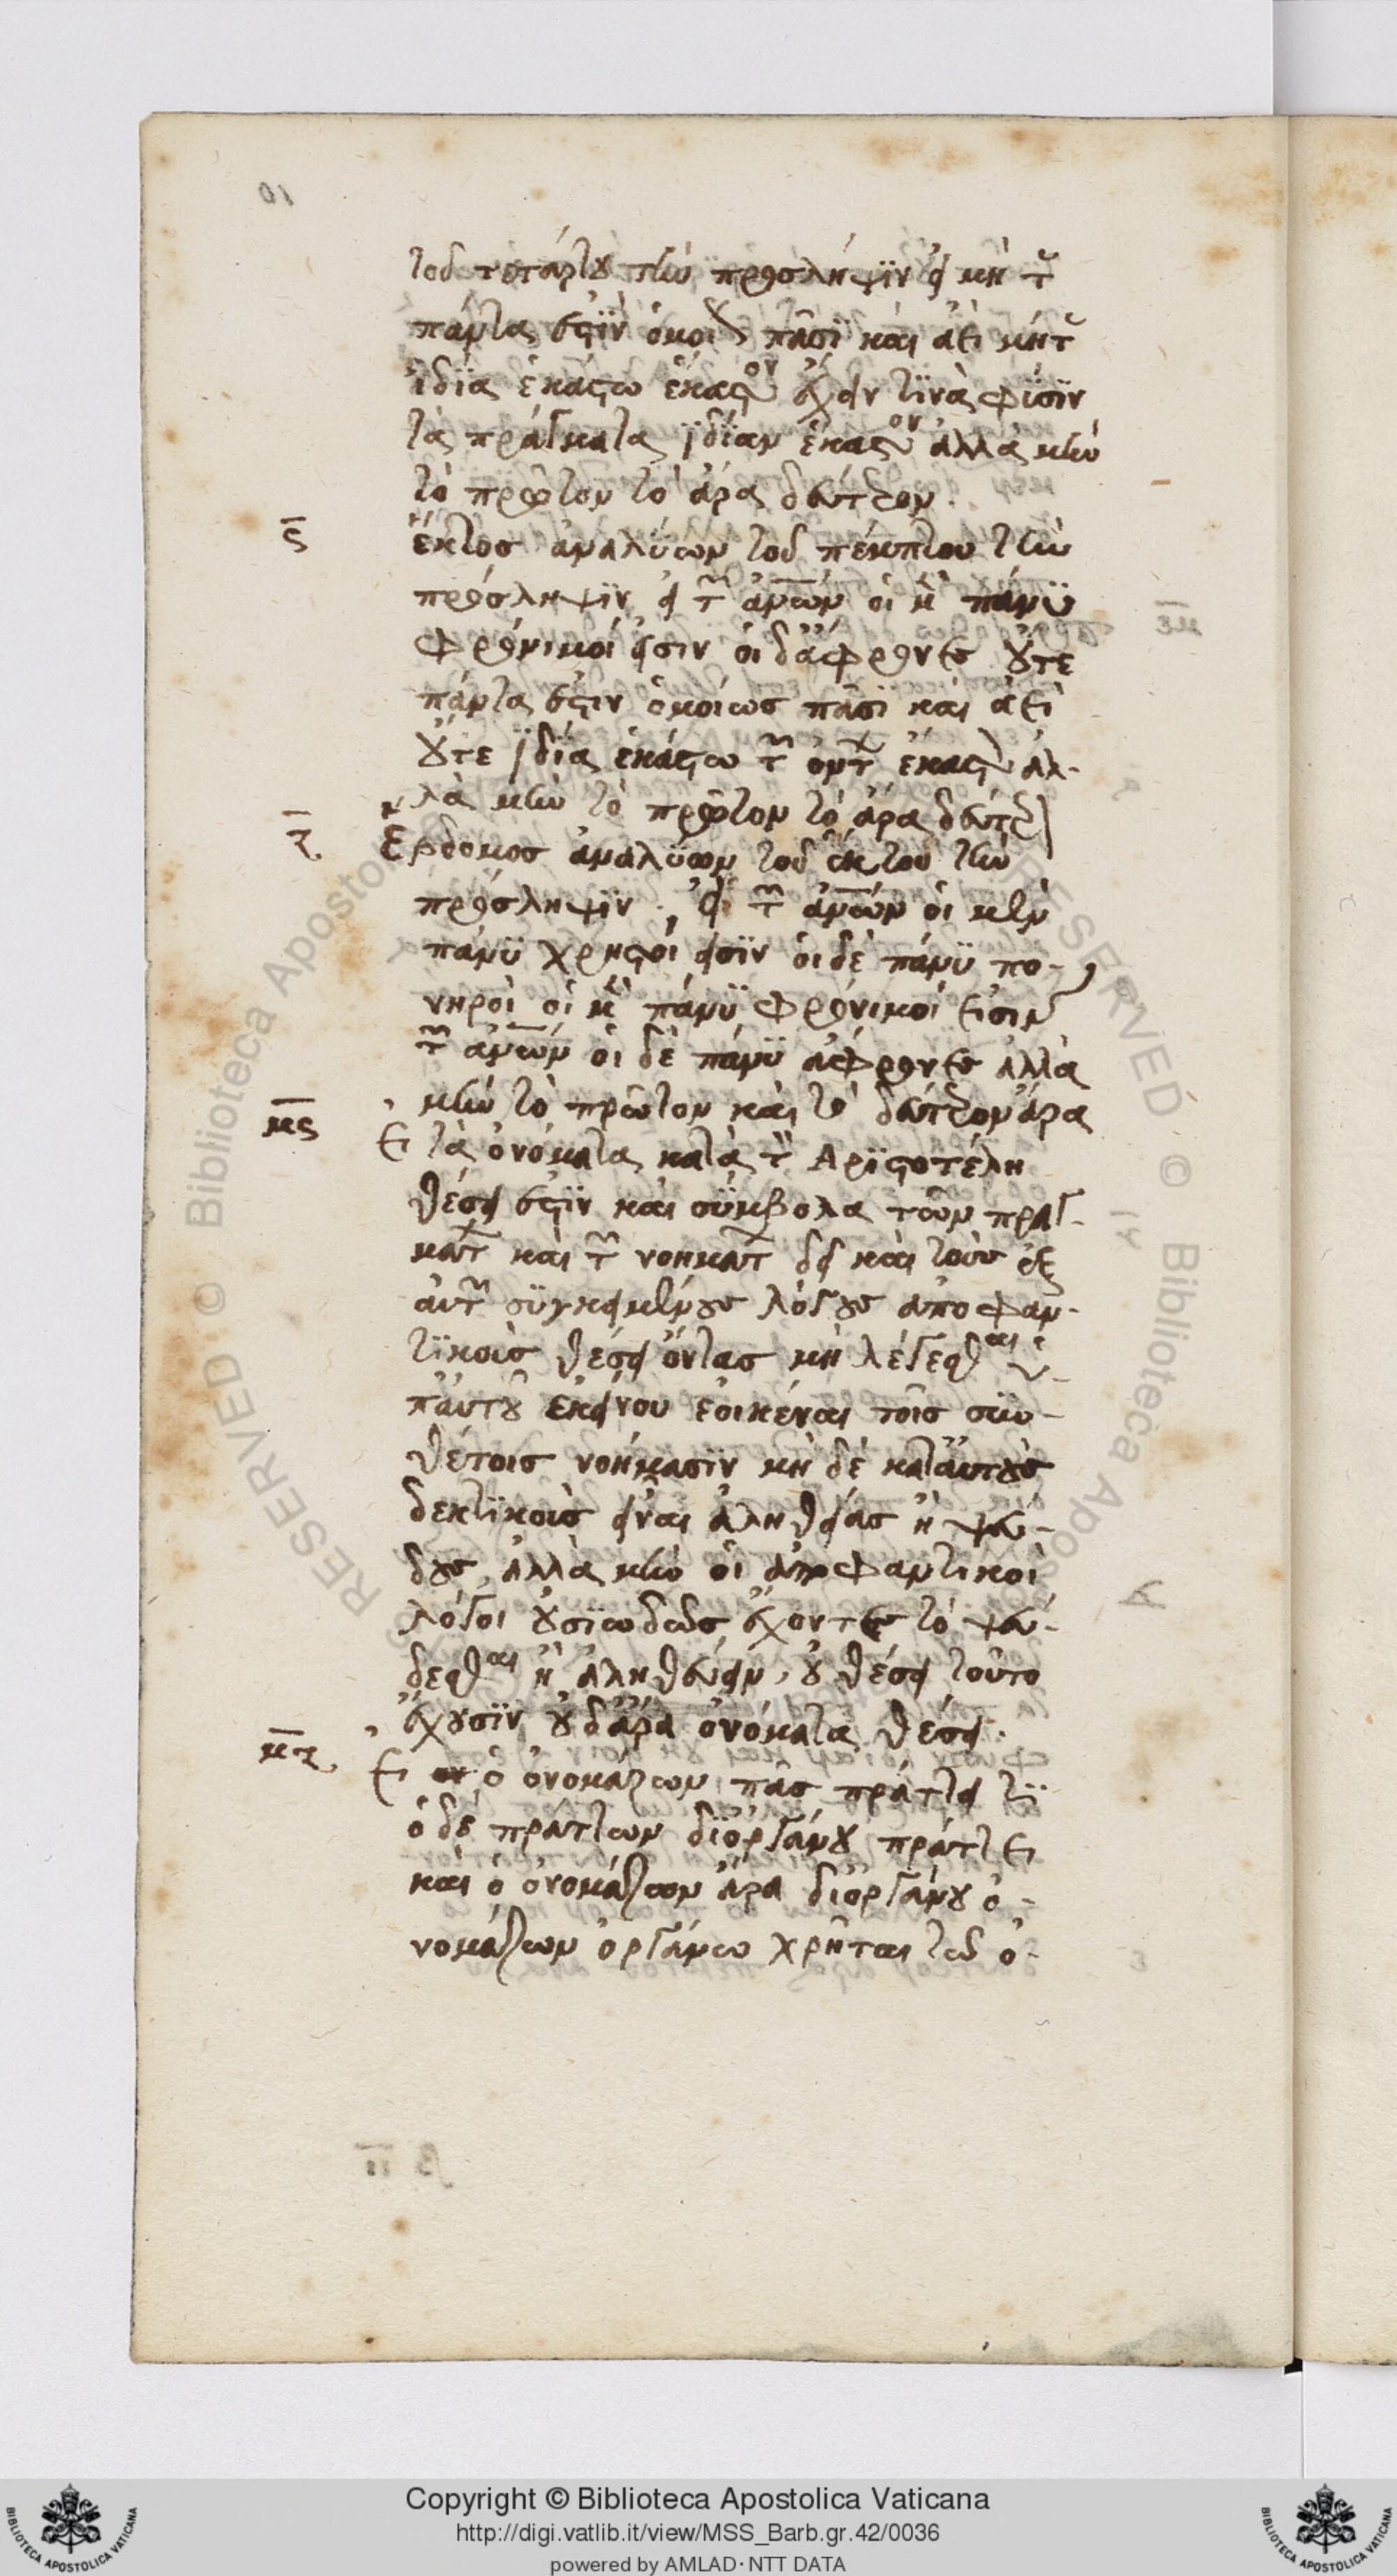 τοῦ τετάρτου τὴν πρόσληψιν εἰ μὴ τῶ
πάντα ἐστὶν ὁμοίως πᾶσι καὶ ἀεὶ μήτε
ἰδία ἑκάστω ἕκαστον ἔχειν τινὰ φύσιν
τὰ πράγματα ἰδίαν ἕκαστον ἀλλὰ μὴν
τὸ πρῶτον τὸ ἄρα δεύτερον.
ϛ ἕκτος ἀναλύων τοῦ πέμπτου τὴν
πρόσληψιν εἰ τῶν ἀνων οἱ μὲν πάνυ
φρόνιμοί εἰσιν οἱ δ' ἄφρονες οὔτε
πάντα ἐστιν ὁμοίως πᾶσι καὶ ἀεὶ
οὔτε ἰδία ἑκάστω τῶν ὄντων ἕκαστον ἀλ-
λὰ μὴν τὸ πρῶτον τὸ ἄρα δεύτερ
ζ ἕβδομος ἀναλύων τοῦ ἕκτου τὴν
πρόσληψιν. εἰ τῶν ἀνων οἱ μὲν
πάνυ χρηστοί εἰσιν οἱ δὲ πάνυ πο-
νηροὶ οἱ μὲν πάνυ φρόνιμοί εἰσιν
τῶν ἀνων οἱ δὲ πάνυ ἄφρονες ἀλλὰ
μὴν τὸ πρῶτον καὶ τὸ δεύτερον ἄρα
μϛ Εἰ τὰ ὀνόματα κατὰ τὸν Αριστοτέλη
θέσει ἐστὶν καὶ σύμβολα τῶν πραγ-
μάτων καὶ τῶν νοημάτων δεῖ καὶ τοὺς ἐξ
αὐτῶν συγκειμένους λόγους ἀποφαν-
τικοὺς θέσει ὄντας μὴ λέγεσθαι ὑ-
π' αὐτοῦ ἐκείνου ἐοικέναι τοῖς συν-
θέτοις νοήμασιν μὴ δὲ κατ' αὐτοὺς
δεκτικοὺς εἶναι ἀληθείας ἢ ψεύ-
δους, ἀλλὰ μὴν οἱ ἀποφαντικοὶ
λόγοι οὐσιωδῶς ἔχοντες τὸ ψεύ-
δεσθαι ἢ ἀληθεύειν, οὐ θέσει τοῦτο
ἔχουσιν οὐδ' ἄρα ὀνόματα θέσει.
μζ Εἰ ὁ ὀνομάζων πᾶς πράττει τι
ὁ δὲ πράττων δι' ὀργάνου πράττει
καὶ ὁ ὀνομάζων ἄρα δι' ὀργάνου ὀ-
νομάζων ὀργάνω χρῆται τῶ ὀ-
Copyright © Biblioteca Apostolica Vaticana
http://digi.vatlib.it/view/MSS_Barb.gr.42/0036
powered by AMLAD·NTT DATA